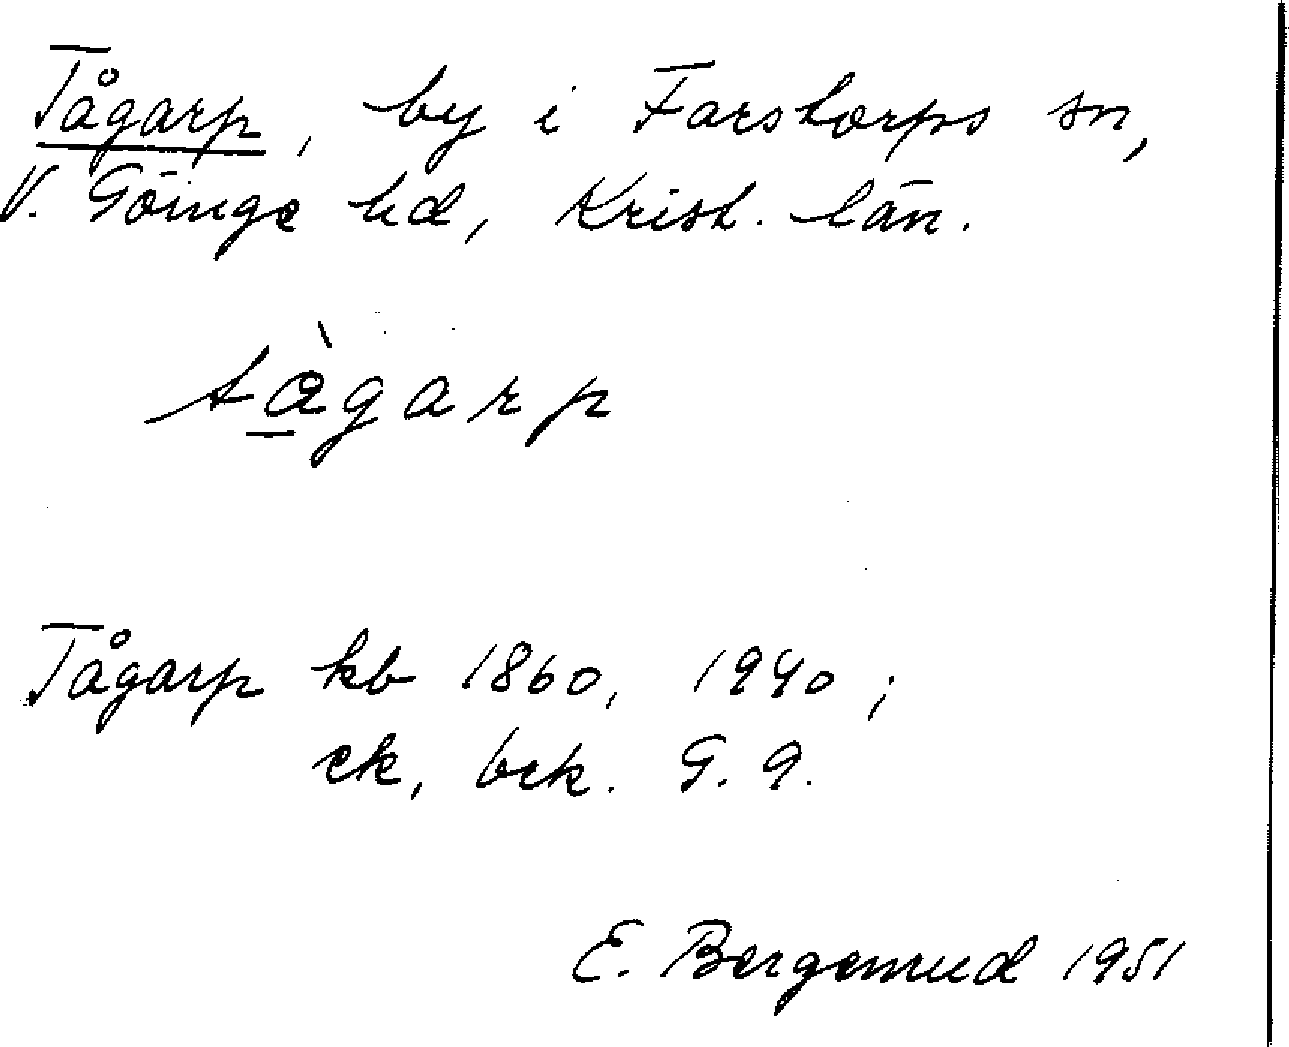 Tågarp, by i Farstorps sn,
V. Göinge hd, Krist. län.
tàgarp
Tågarp kb 1860, 1940;
ek, bek. G. 9.
E. 1951